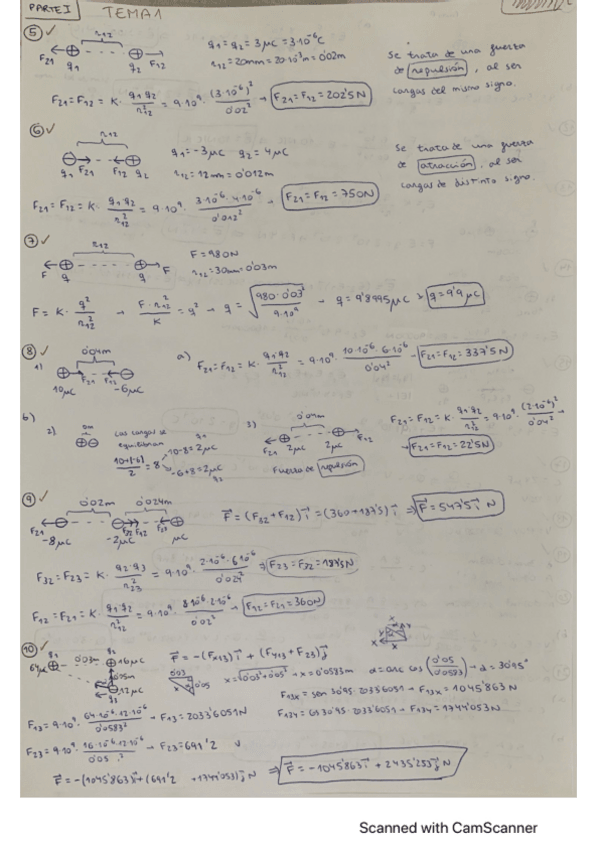 PARTE I TEMA 1
5 ✓ r12 q1 = q2 = 3 μC = 3·10⁻⁶ C
F21 q1 q2 F12 r12 = 20mm = 20·10⁻³ m = 0'02m
Se trata de una fuerza
de repulsión, al ser
cargas del mismo signo.
F21 = F12 = K · q1·q2/r12² = 9·10⁹ · (3·10⁻⁶)²/0'02² → F21 = F12 = 202'5N
6 ✓ r12 q1 = -3 μC q2 = 4 μC
q1 F21 F12 q2 r12 = 12mm = 0'012m
Se trata de una fuerza
de atracción, al ser
cargas de distinto signo.
F21 = F12 = K · q1·q2/r12² = 9·10⁹ · 3·10⁻⁶·4·10⁻⁶/0'012² → F21 = F12 = 750N
7 ✓ r12 F = 980N
F q q F r12 = 30mm = 0'03m
F = K · q²/r12² → F·r12²/K = q² → q = √(980·0'03²/9·10⁹) → q = 9'8995 μC → q = 9'9 μC
8 ✓ 0'04m
1) F21 F12 a) F21 = F12 = K · q1·q2/r12² = 9·10⁹ · 10·10⁻⁶·6·10⁻⁶/0'04² → F21 = F12 = 337'5N
10 μC -6 μC
b)
2) 0m Las cargas se equilibran
10+(-6)/2 = 8 10-8 = 2 μC q1
-6+8 = 2 μC q2
3) 0'04m
F21 2 μC 2 μC F12
Fuerza de repulsión
F21 = F12 = K · q1·q2/r12² = 9·10⁹ · (2·10⁻⁶)²/0'04² →
→ F21 = F12 = 22'5N
9 ✓ 0'02m 0'024m
F21 F32 F12 F23
-8 μC -2 μC μC
F = (F32 + F12) i = (360+187'5) i ⇒ F = 547'5 i N
F32 = F23 = K · q2·q3/r23² = 9·10⁹ · 2·10⁻⁶·6·10⁻⁶/0'024² ⇒ F23 = F32 = 187'5N
F12 = F21 = K · q1·q2/r12² = 9·10⁹ · 8·10⁻⁶·2·10⁻⁶/0'02² → F12 = F21 = 360N
10 ✓ q1 q2
64 μC 0'03m 16 μC
0'05m
-12 μC
F = -(Fx13) i + (Fy13 + F23) j
0'03 x 0'05 x = √(0'03²+0'05²) → x = 0'0583m α = arc cos (0'05/0'0583) → α = 30'95°
F13x = sen 30'95 · 2033'6051 → F13x = 1045'863N
F13y = cos 30'95 · 2033'6051 → F13y = 1744'053N
F13 = 9·10⁹ · 64·10⁻⁶·12·10⁻⁶/0'0583² → F13 = 2033'6051N
F23 = 9·10⁹ · 16·10⁻⁶·12·10⁻⁶/0'05² → F23 = 691'2 N
F = -(1045'863) i + (691'2 + 1744'053) j N ⇒ F = -1045'863 i + 2435'253 j N
Scanned with CamScanner